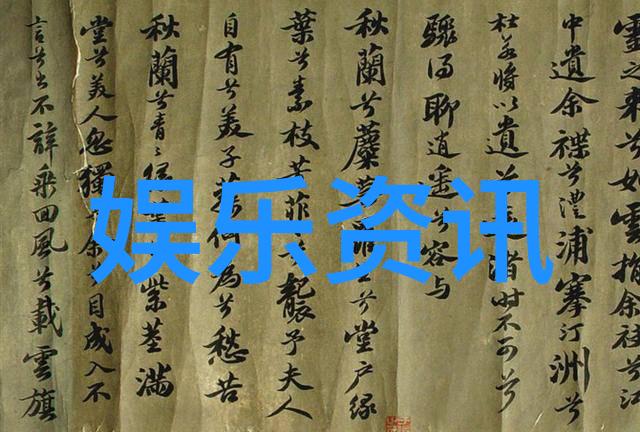 靈之来兮如雲捐余袂兮江
中遺余褋兮澧浦搴汀洲兮
杜若将以遺兮遠時不可兮
驟得聊逍遥兮容与
秋蘭兮麋蕪兮堂户緑
葉兮素枝芳菲兮襲予夫人
自有兮美子蓀何為兮愁苦
秋蘭兮青〻緑兮紫莖滿
堂兮美人忽獨余兮目成入不
言兮出不辭乘回風兮載雲旗
娱乐资讯